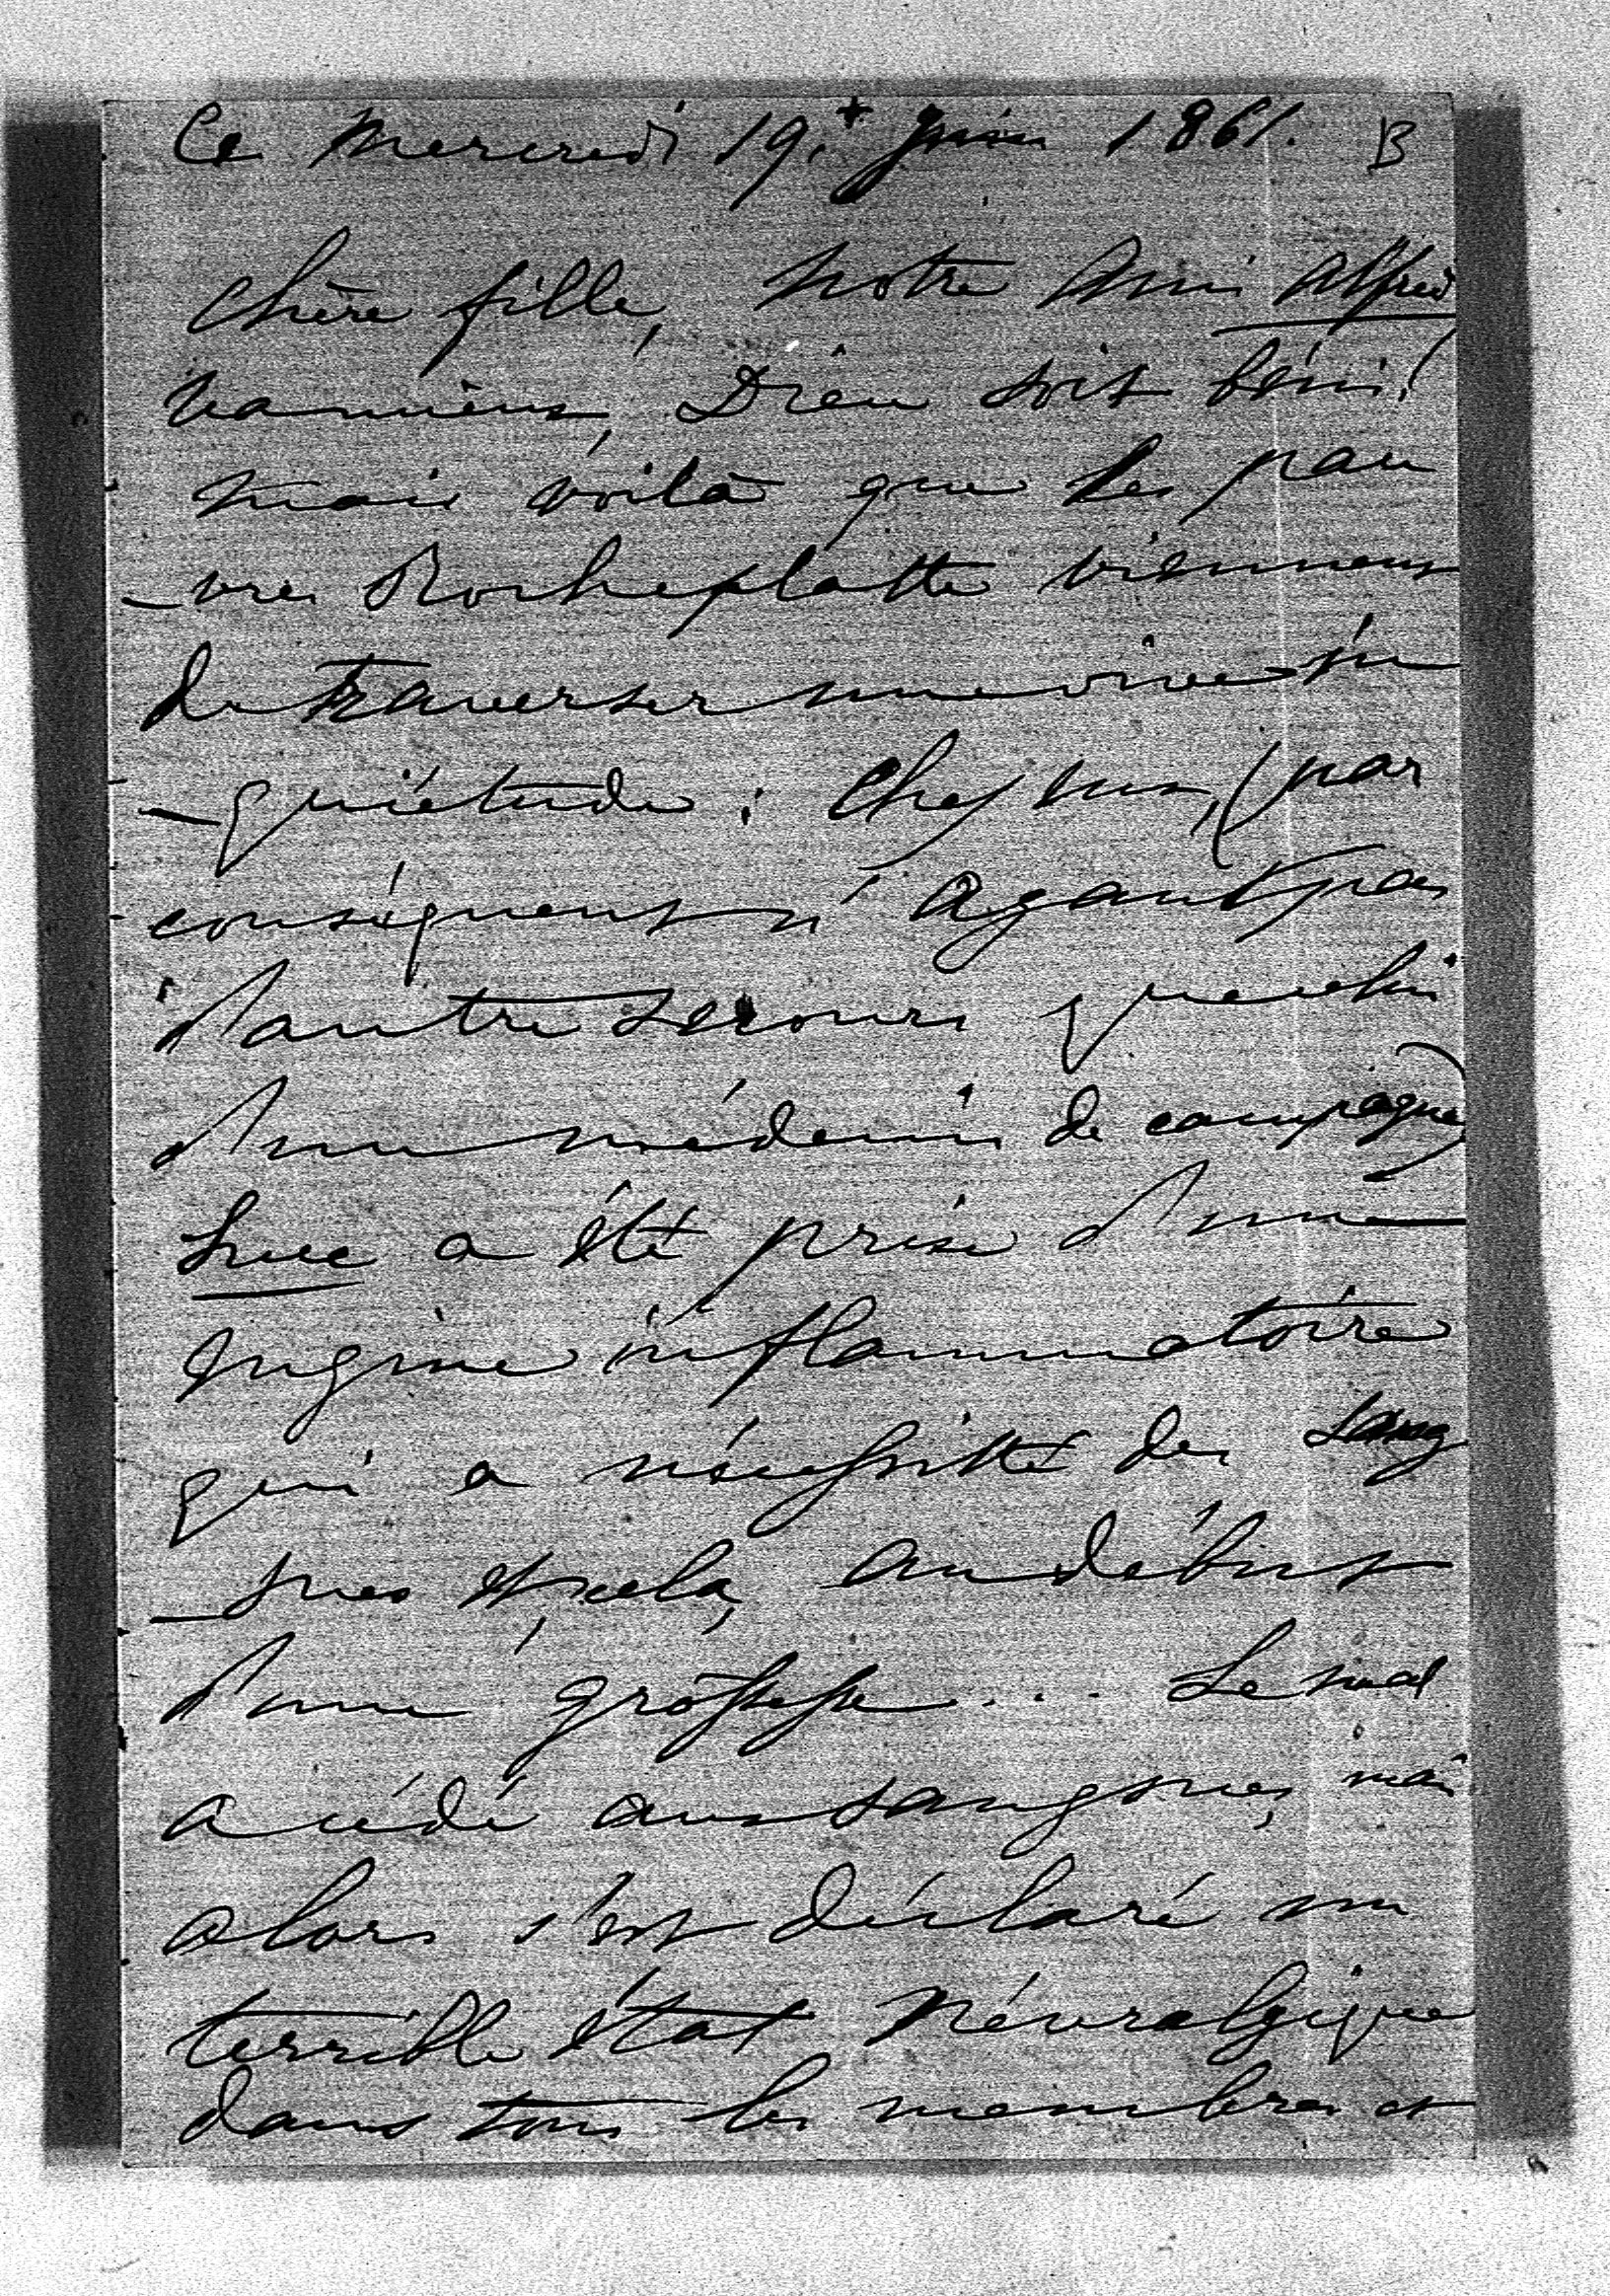 Ce mercredi 19. + juin 1861. B
Chère fille, notre ami Alfred
va mieux, Dieu soit béni!
mais voilà que les pau
-vres Rocheplatte viennent
de traverser une vive in
-quiétude : Chez eux, (par
conséquent n'ayant pas
d'autre secours que celui
d'un médecin de campagne)
Luce a été prise d'une
Angine inflammatoire
qui a nécessité des sang
-sues et, cela, au début
d'une grossesse.... Le mal
a cédé aux sangsues, mais
alors s'est déclaré un
terrible état névralgique
dans tous les membres et